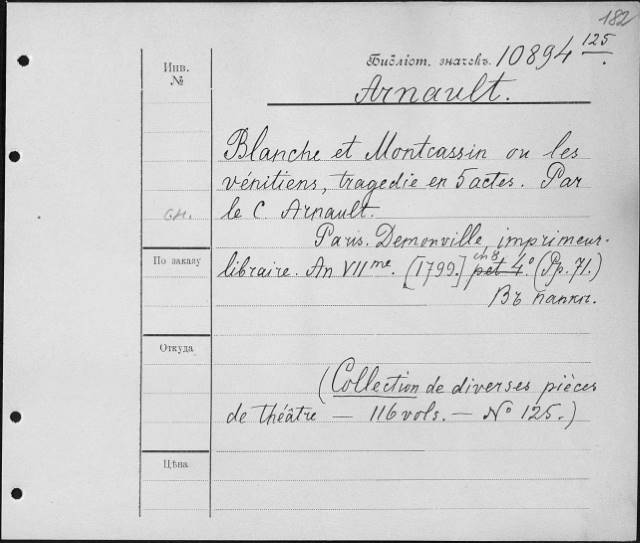 182
Инв. №
Библіот. значекъ. 10894 125
Arnault.
Blanche et Montcassin ou les
vénitiens, tragedie en 5 actes. Par
le C. Arnault.
Paris. Demonville, imprimeur-
libraire. An VII me. [1799.] pet 4.° (Pp. 71.)
in 8
Въ папкѣ.
По заказу
Откуда
(Collection de diverses pièces
de théâtre — 116 vols. — № 125.)
Цѣна